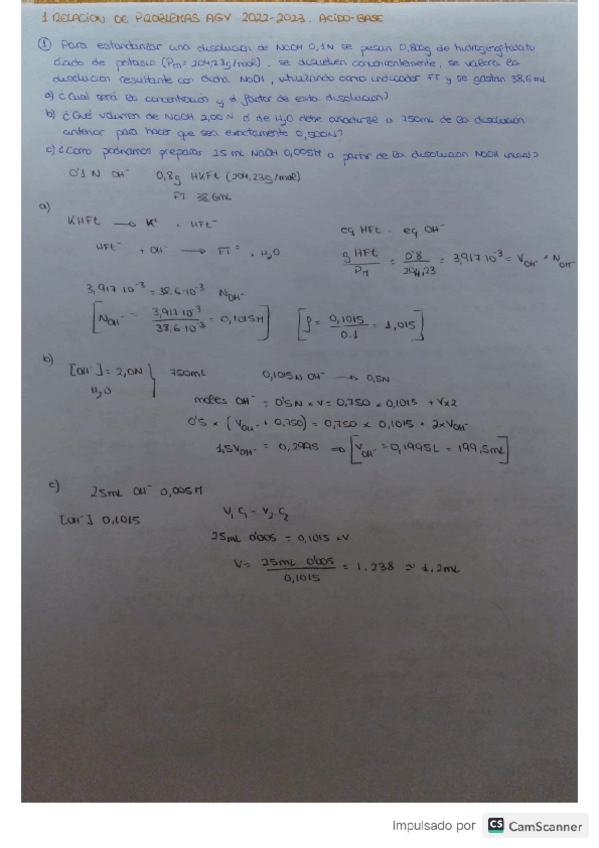 1 RELACION DE PROBLEMAS AGV 2022-2023. ACIDO-BASE
① Para estandarizar una disolución de NaOH 0,1N se pesan 0,800g de hidrogenoftalato
ácido de potasio (Pm= 204,23g/mol), se disuelven convenientemente, se valora la
disolución resultante con dicha NaOH, utilizando como indicador FT y se gastan 38,6mL
a) ¿Cual será la concentración y el factor de esta disolución?
b) ¿Qué volumen de NaOH 2,00N ó de H2O debe añadirse a 750mL de la disolución
anterior para hacer que sea exactamente 0,500N?
c) ¿Como podríamos preparar 25 mL NaOH 0,005M a partir de la disolución NaOH inicial?
0'1 N OH⁻ 0,8g HKFt (204,23g/mol)
FT 38.6mL
a)
KHFt → K⁺ + HFt⁻
HFt⁻ + OH⁻ → FT⁼ + H2O
eq HFt = eq OH⁻
g HFt / PM = 0'8 / 204,23 = 3,917 10⁻³ = VOH⁻ × NOH⁻
3,917 10⁻³ = 38.6 10⁻³ NOH⁻
[NOH⁻ = 3,917 10⁻³ / 38.6 10⁻³ = 0,1015M] [f = 0,1015 / 0.1 = 1,015]
b)
[OH⁻] = 2,0N } 750mL 0,1015N OH⁻ → 0,5N
H2O
moles OH⁻ = 0'5N × V = 0,750 × 0,1015 + V×2
0'5 × (VOH⁻ + 0,750) = 0,750 × 0,1015 + 2×VOH⁻
1,5VOH⁻ = 0,2995 ⇒ [VOH⁻ = 0,1995L = 199,5mL]
c)
25mL OH⁻ 0,005M
[OH⁻] 0,1015
V1 C1 = V2 C2
25mL 0'005 = 0,1015 × V
V = 25mL 0'005 / 0,1015 = 1.238 ≃ 1.2mL
Impulsado por CS CamScanner